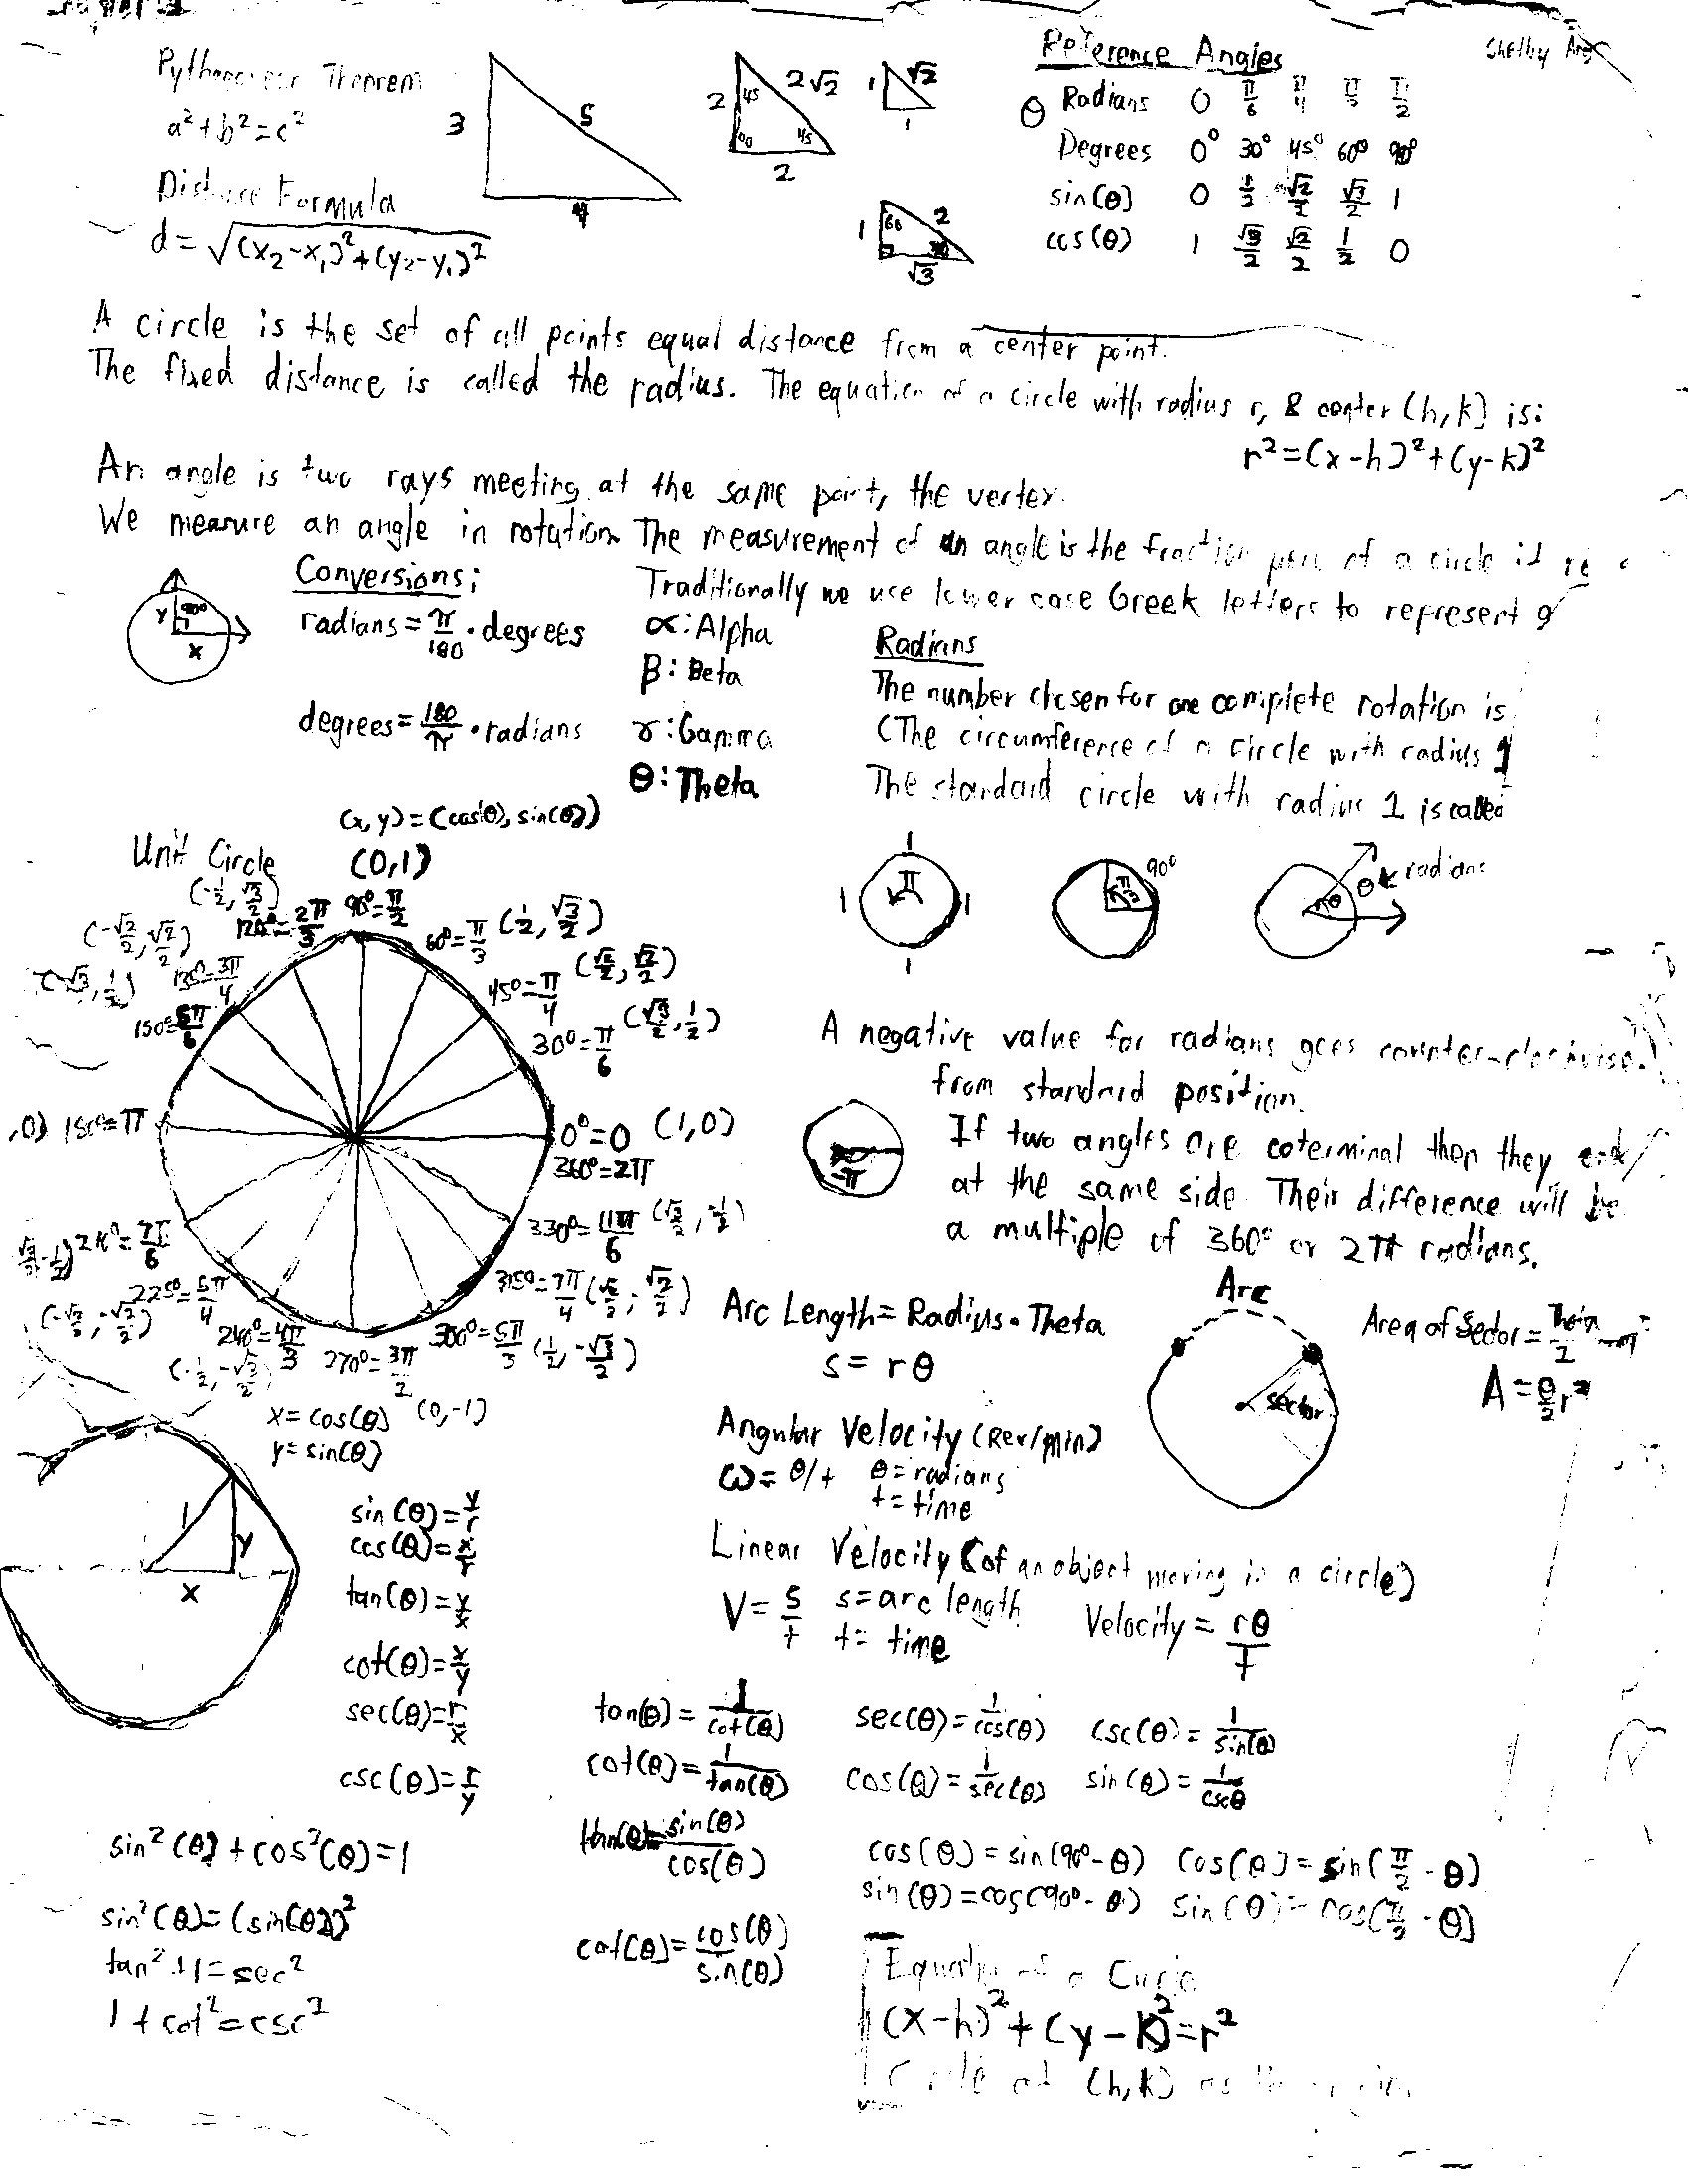 Shelby
Pythagorean Theorem
a²+b²=c²
Distance Formula
d=√(x₂-x₁)²+(y₂-y₁)²
3
5
4
2
45
2√2
90
45
2
1
√2
1
1
60
2
30
√3
Reference Angles
θ Radians 0 π/6 π/4 π/3 π/2
Degrees 0° 30° 45° 60° 90°
sin(θ) 0 1/2 √2/2 √3/2 1
cos(θ) 1 √3/2 √2/2 1/2 0
A circle is the set of all points equal distance from a center point.
The fixed distance is called the radius. The equation of a circle with radius r, & center (h,k) is:
r²=(x-h)²+(y-k)²
An angle is two rays meeting at the same point, the vertex.
We measure an angle in rotation. The measurement of an angle is the fraction of a circle it
Traditionally we use lower case Greek letters to represent
y 90°
x
Conversions:
radians=π/180·degrees
degrees=180/π·radians
α:Alpha
β:Beta
γ:Gamma
θ:Theta
Radians
The number chosen for one complete rotation is
(The circumference of a circle with radius 1
The standard circle with radius 1 is called
1
1 π 1
1
π/2 90°
θ θ radians
(x,y)=(cos(θ),sin(θ))
Unit Circle (0,1)
90°=π/2
(-1/2,√3/2)
120°=2π/3
60°=π/3 (1/2,√3/2)
(-√2/2,√2/2)
135°=3π/4
45°=π/4 (√2/2,√2/2)
150°=5π/6
30°=π/6 (√3/2,1/2)
,0) 180°=π
0°=0 (1,0)
360°=2π
210°=7π/6
330°=11π/6 (√3/2,-1/2)
(-√2/2,-√2/2)
225°=5π/4
315°=7π/4 (√2/2,-√2/2)
240°=4π/3
(-1/2,-√3/2)
270°=3π/2
300°=5π/3 (1/2,-√3/2)
(0,-1)
x=cos(θ)
y=sin(θ)
A negative value for radians goes counter-clockwise
from standard position.
-π
If two angles are coterminal then they end
at the same side. Their difference will be
a multiple of 360° or 2π radians.
Arc Length=Radius·Theta
s=rθ
Arc
sector
Area of Sector=Theta/2
A=θ/2r²
Angular Velocity (Rev/min)
ω=θ/t θ=radians
t=time
Linear Velocity (of an object moving in a circle)
V=s/t s=arc length
t=time
Velocity=rθ/t
1
y
x
sin(θ)=y/r
cos(θ)=x/r
tan(θ)=y/x
cot(θ)=x/y
sec(θ)=r/x
csc(θ)=r/y
tan(θ)=1/cot(θ) sec(θ)=1/cos(θ) csc(θ)=1/sin(θ)
cot(θ)=1/tan(θ) cos(θ)=1/sec(θ) sin(θ)=1/cscθ
tan(θ)=sin(θ)/cos(θ)
cot(θ)=cos(θ)/sin(θ)
cos(θ)=sin(90°-θ) cos(θ)=sin(π/2-θ)
sin(θ)=cos(90°-θ) sin(θ)=cos(π/2-θ)
sin²(θ)+cos²(θ)=1
sin²(θ)=(sin(θ))²
tan²+1=sec²
1+cot²=csc²
of a
(x-h)²+(y-k)²=r²
(h,k) as